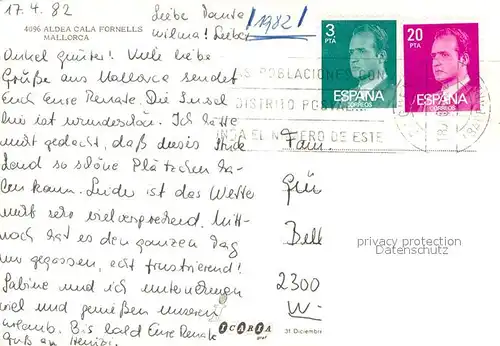 17.4.82
4096 ALDEA CALA FORNELLS
MALLORCA
Liebe Tante
Wilma! Lieber
1982
Onkel Günter! Viele liebe
Grüße aus Mallorca sendet
Euch Eure Renate. Die Insel
hier ist wunderschön. Ich hätte
nicht gedacht, daß dieses
Land so schöne Plätzchen ha-
ben kann. Leider ist das Wetter
nicht sehr vielversprechend. Mitt-
woch hat es den ganzen Tag
nur gegossen, echt frustrierend!
Sabine und ich unternehmen
viel und genießen unseren
Urlaub. Bis bald Eure Renate
Gruß an
3
PTA
ESPAÑA
CORREOS
20
PTA
ESPAÑA
CORREOS
AS POBLACIONES CON
DISTRITO POSTAL
NGA EL NUMERO DE ESTE
Fam.
Gün
Bell
2300
W-
privacy protection
Datenschutz
ICARIA
31 Diciembre